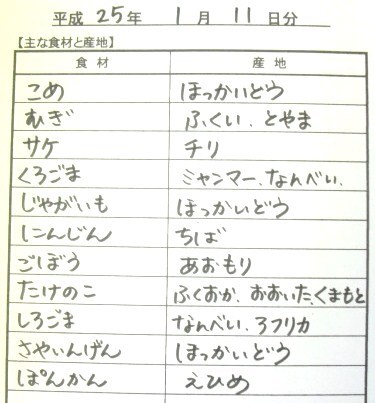 平成 25年 1月 11日分
【主な食材と産地】
食材 産地
こめ ほっかいどう
むぎ ふくい、とやま
サケ チリ
くろごま ミャンマー、なんべい、
じゃがいも ほっかいどう
にんじん ちば
ごぼう あおもり
たけのこ ふくおか、おおいた、くまもと
しろごま なんべい、アフリカ
さやいんげん ほっかいどう
ぽんかん えひめ